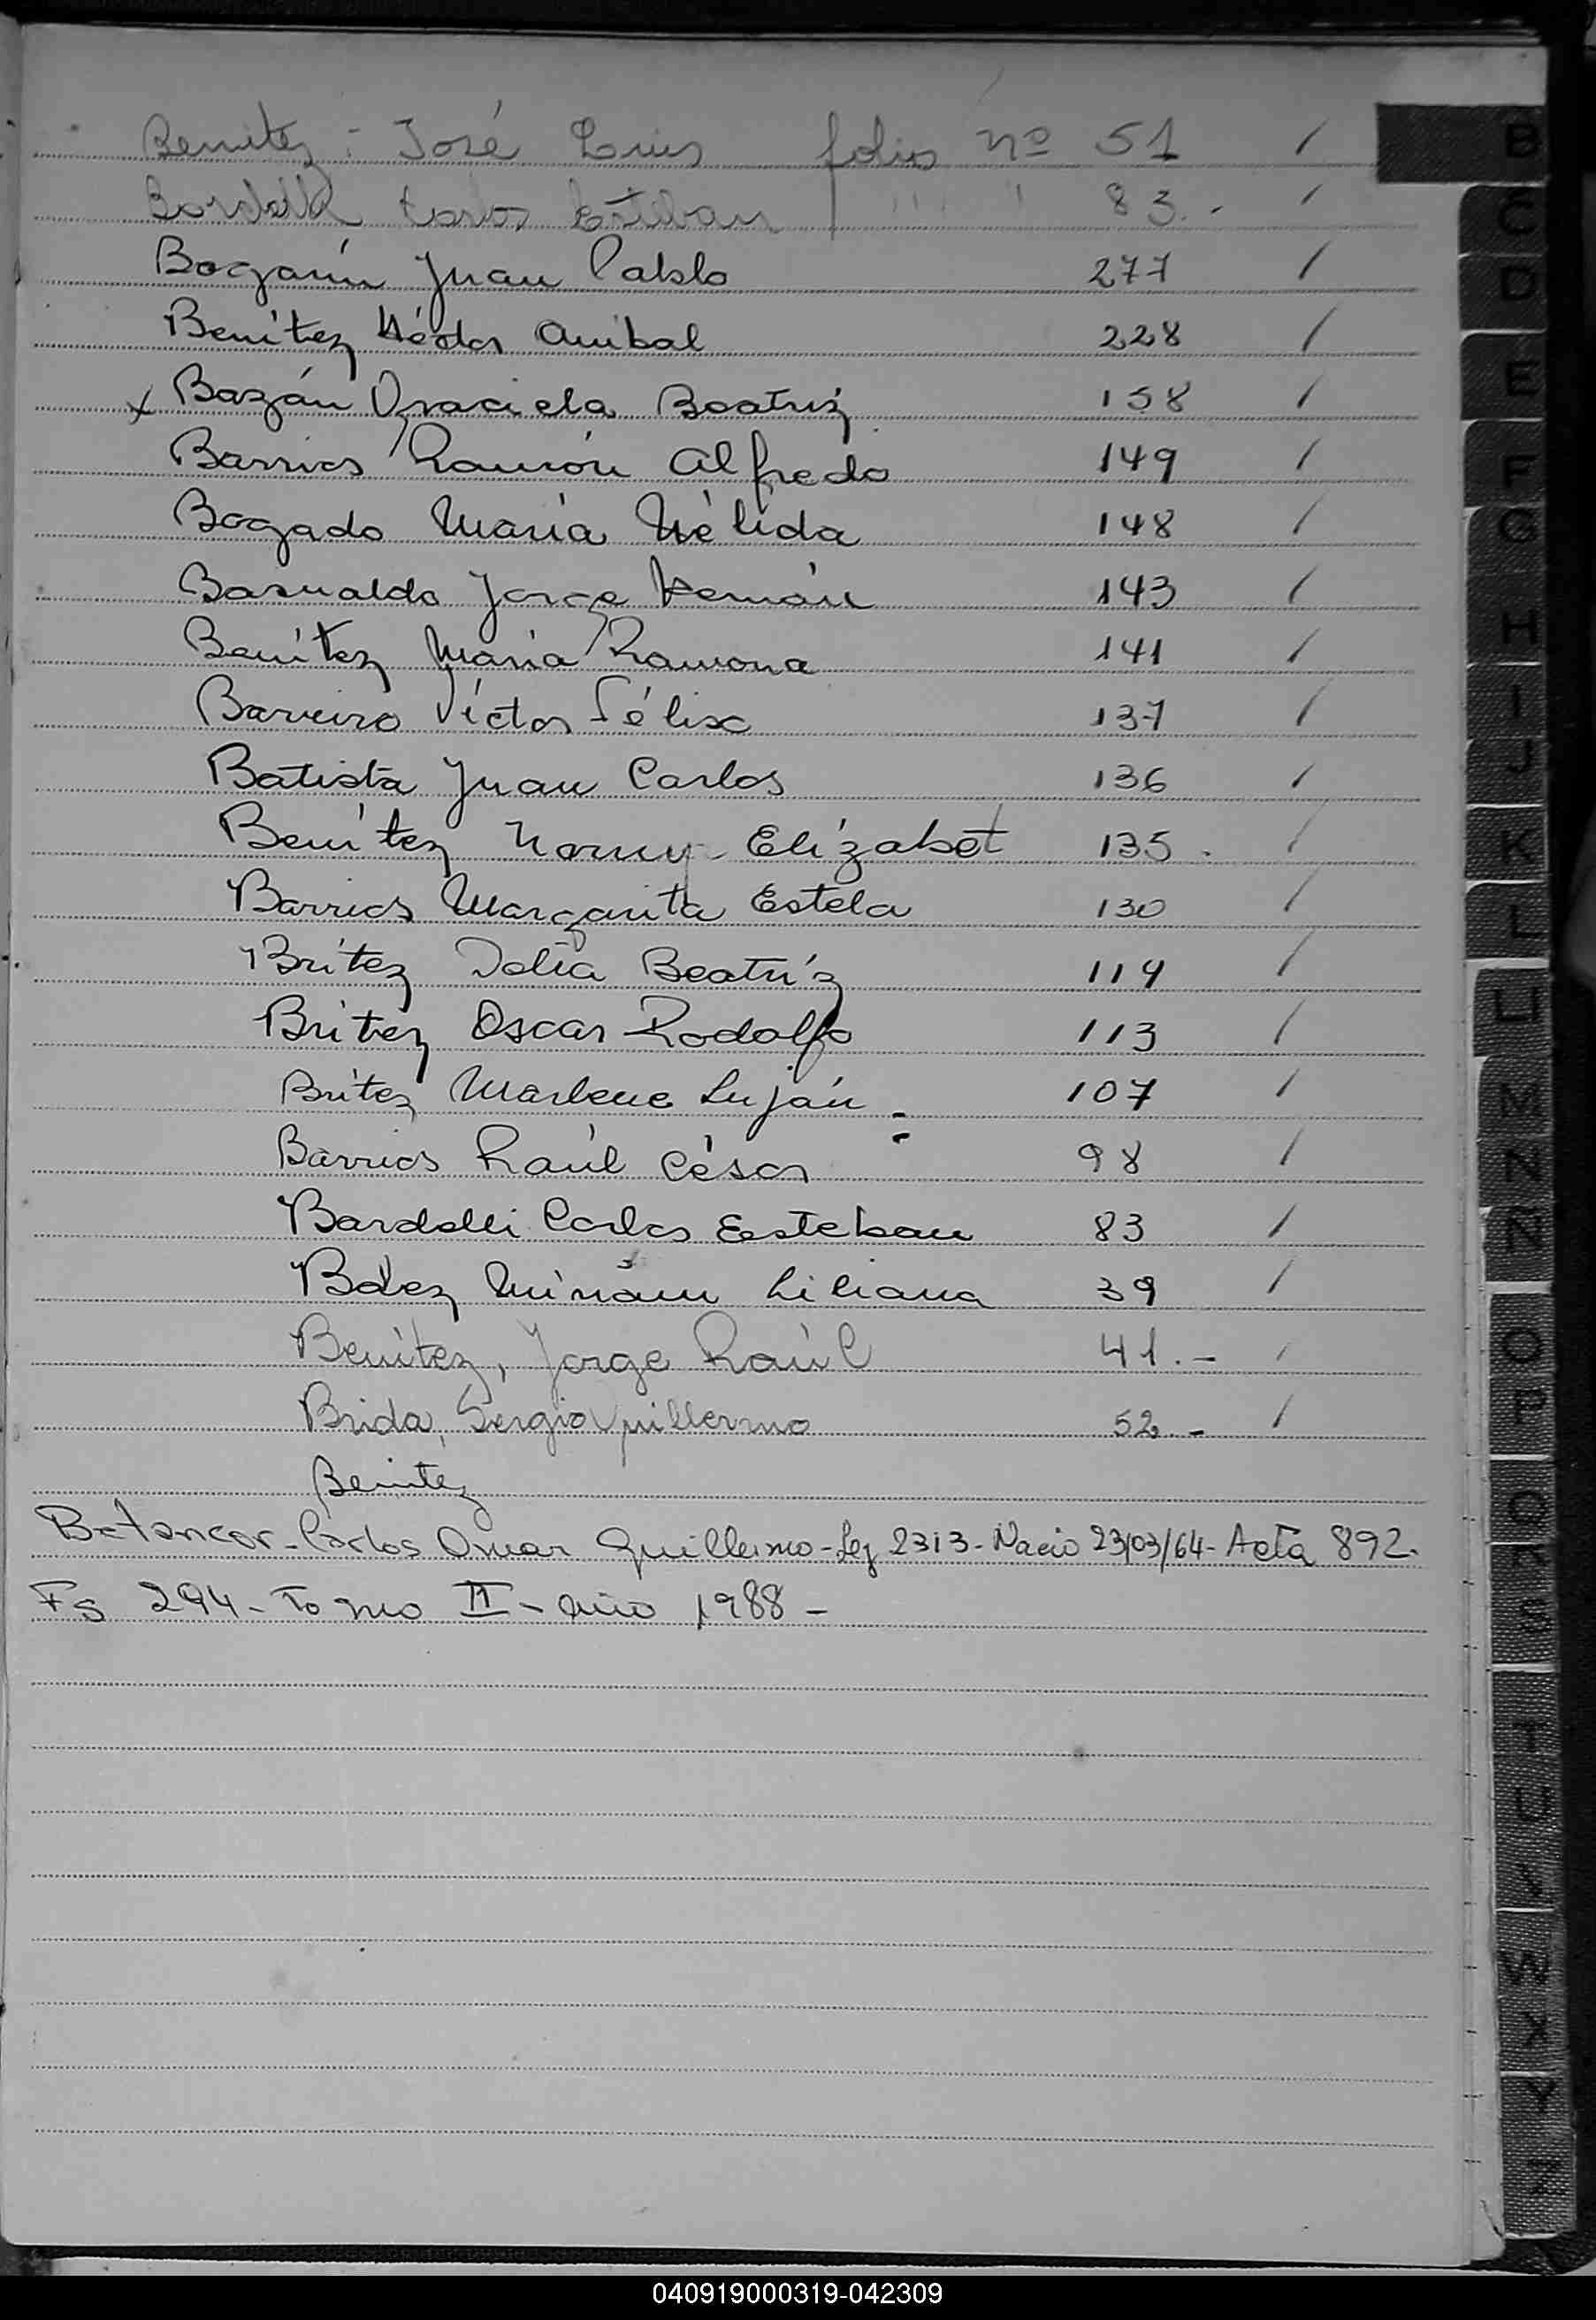 Benitez - José Luis folio nº 51 /
Bordelli Carlos Esteban " " " 83.- /
Bogarín Juan Pablo 277 /
Benítez Héctor Anibal 228 /
x Bazán Graciela Beatriz 158 /
Barrios Ramón Alfredo 149 /
Bogado María Nélida 148 /
Basualdo Jorge Hernán 143 /
Benítez María Ramona 141 /
Barreiro Víctor Félix 137 /
Batista Juan Carlos 136 /
Benítez Norma Elizabet 135 . /
Barrios Margarita Estela 130 /
Britez Beatríz 119 /
Britez Oscar Rodolfo 113 /
Britez Marlene Luján - 107 /
Barrios Raúl César - 98 /
Bardelli Carlos Eesteban 83 /
Báez Miriam Liliana 39 /
Benítez, Jorge Raúl 41.- /
Brida, Sergio Guillermo 52.- /
Benitez
Betancor - Carlos Omar Guillermo - Leg 2313 - Nacio 23/03/64 - Acta 892.
Fs 294 - Tomo II - año 1988 -
B
C
D
E
F
G
H
I
J
K
L
LL
M
N
Ñ
O
P
Q
R
S
T
U
V
W
X
Y
Z
040919000319-042309